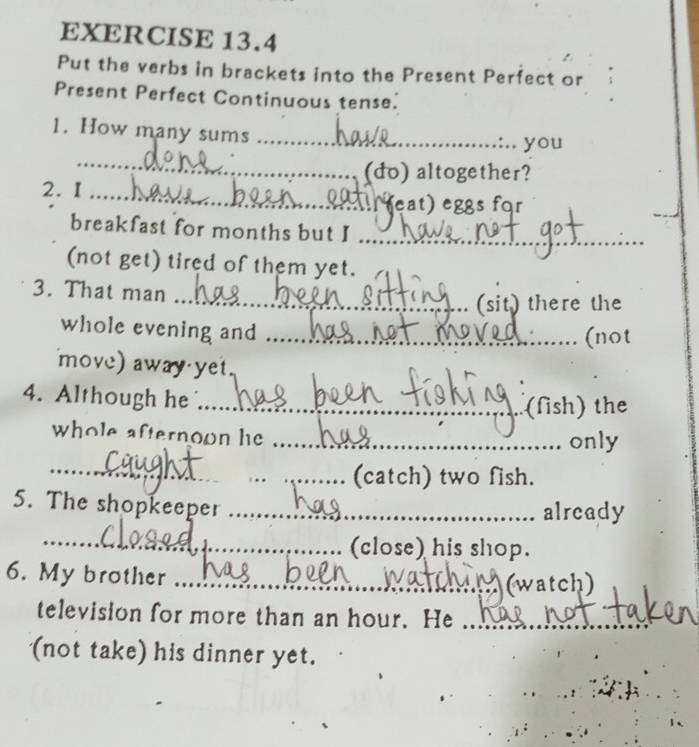 EXERCISE 13.4
Put the verbs in brackets into the Present Perfect or
Present Perfect Continuous tense.
1. How many sums have you
done (do) altogether?
2. I have been eating (eat) eggs for
breakfast for months but I have not got
(not get) tired of them yet.
3. That man has been sitting (sit) there the
whole evening and has not moved (not
move) away yet.
4. Although he has been fishing (fish) the
whole afternoon he has only
caught (catch) two fish.
5. The shopkeeper has already
closed (close) his shop.
6. My brother has been watching (watch)
television for more than an hour. He has not taken
(not take) his dinner yet.